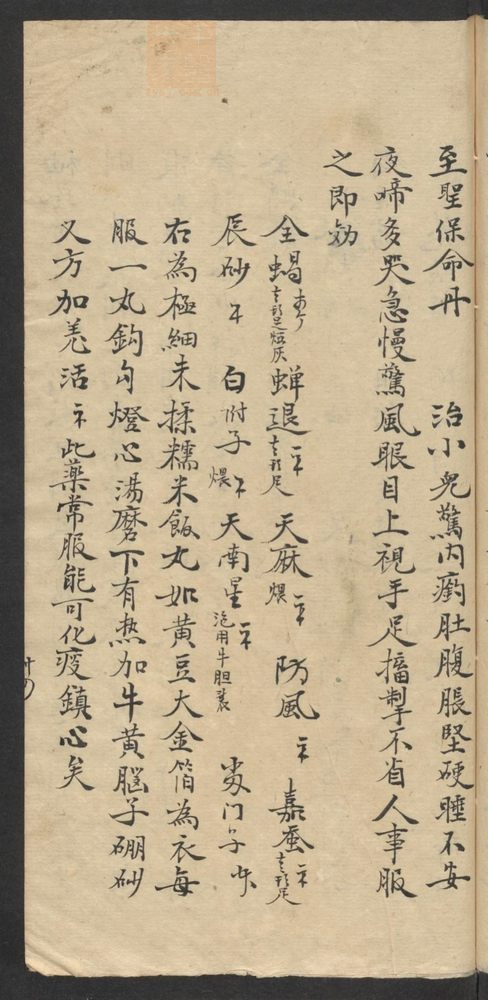 至聖保命丹　治小兒驚內瘹肚腹脹堅硬睡不安
夜啼多哭急慢驚風眼目上視手足搐掣不省人事服
之即効
全蝎去形足焙灰　蟬退去形足　天麻煨　防風　嘉蚕去形足
辰砂　白附子煨　天南星泡用牛胆製　麥门子
右為極細末揉糯米飯丸如黃豆大金箔為衣每
服一丸鈎勾燈心湯磨下有热加牛黃腦子硼砂
又方加羌活　此藥常服能可化痰鎮心矣